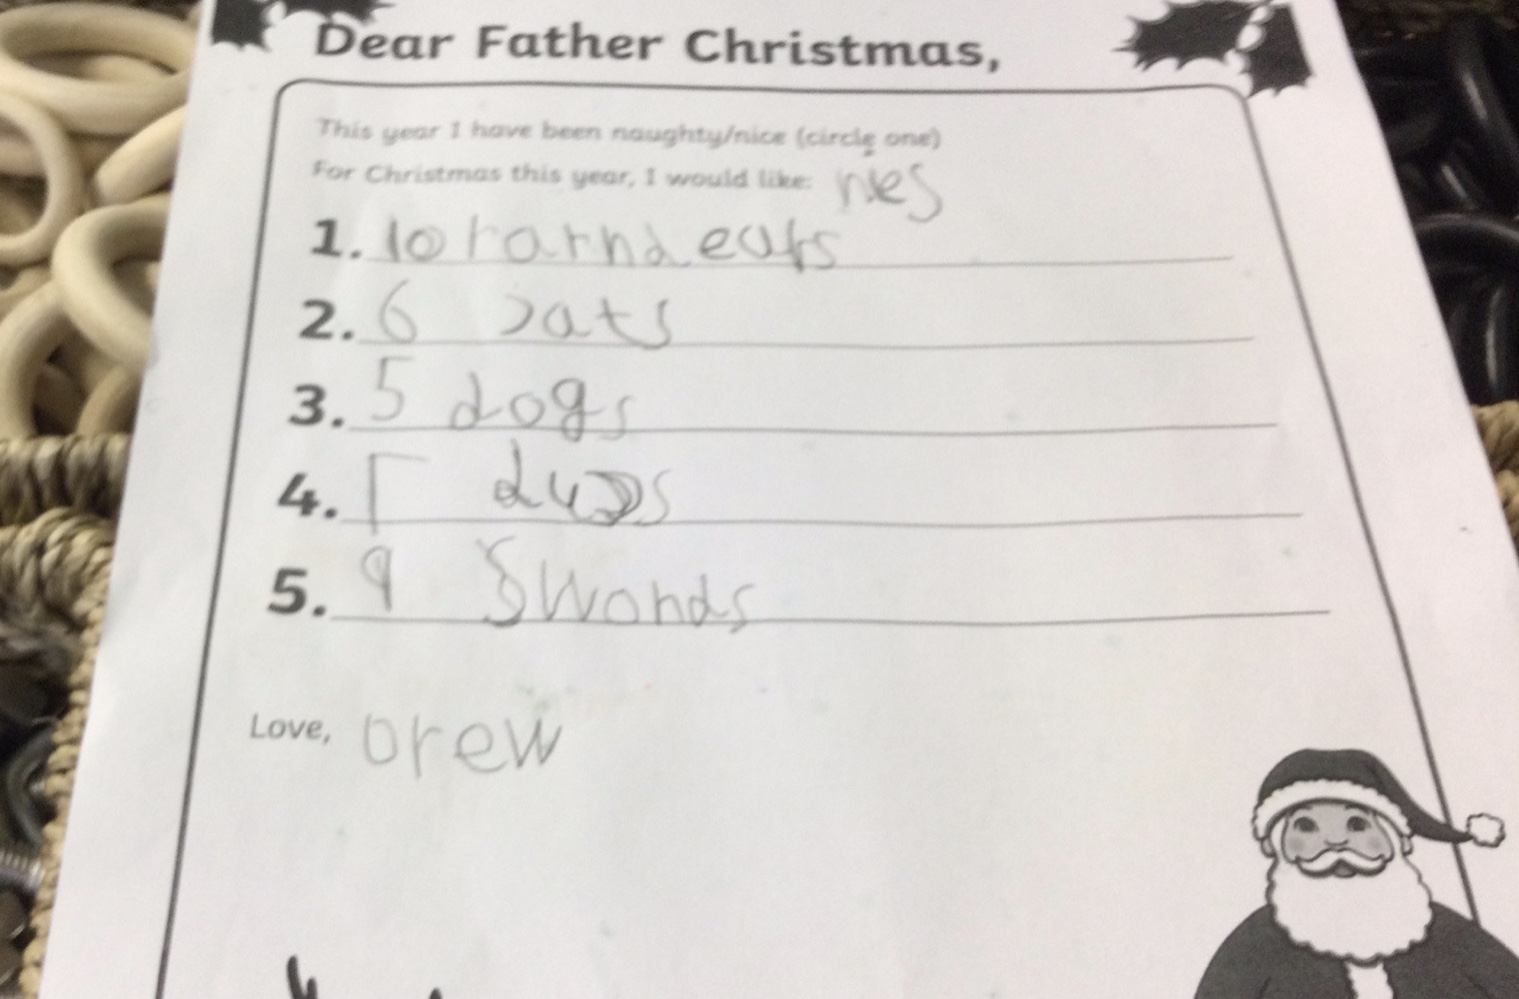 Dear Father Christmas,
This year I have been naughty/nice (circle one)
For Christmas this year, I would like: nes
1. 10 rarnd eurs
2. 6 cats
3. 5 dogs
4.
5. 9 Swonds
Love, Drew